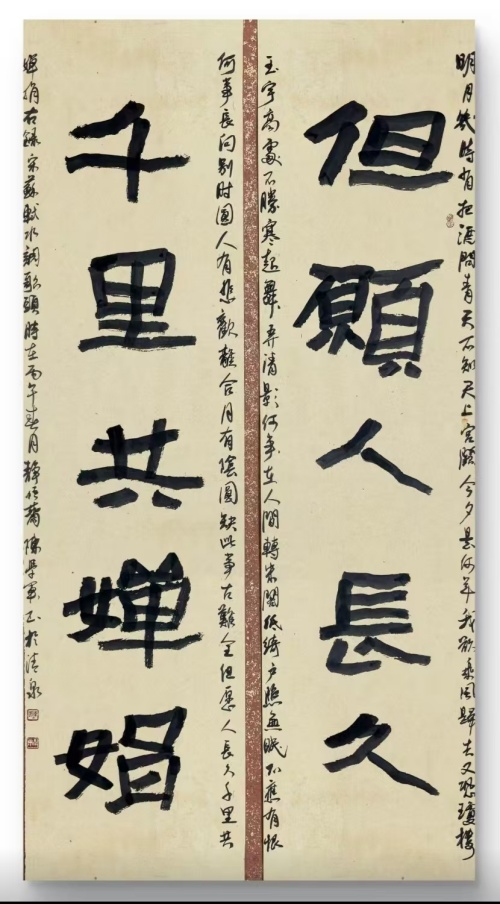 明月幾時有把酒問青天不知天上宮闕今夕是何年我欲乘風歸去又恐瓊樓
但願人長久
玉宇高處不勝寒起舞弄清影何事在人間轉朱閣低綺戶照無眠不應有恨
何事長向別時圓人有悲歡離合月有陰圓缺此事古難全但愿人長久千里共
千里共嬋娟
嬋娟右錄宋蘇軾水調歌頭時在丙午春月靜齋陳學軍於清泉